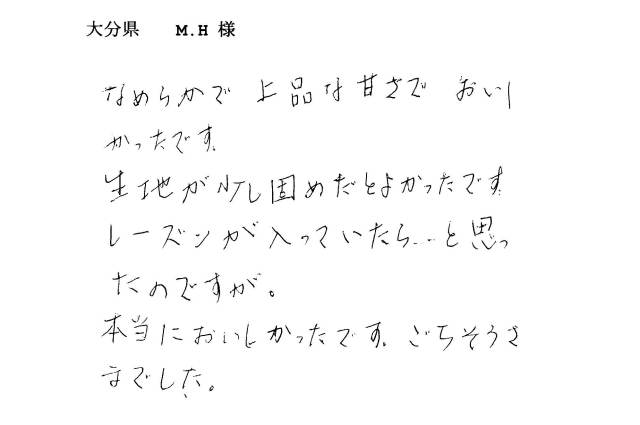 大分県　　M.H 様
なめらかで 上品な甘さで おいし
かったです。
生地が少し固めだとよかったです
レーズンが入っていたら…と思っ
たのですが。
本当においしかったです。ごちそうさ
までした。